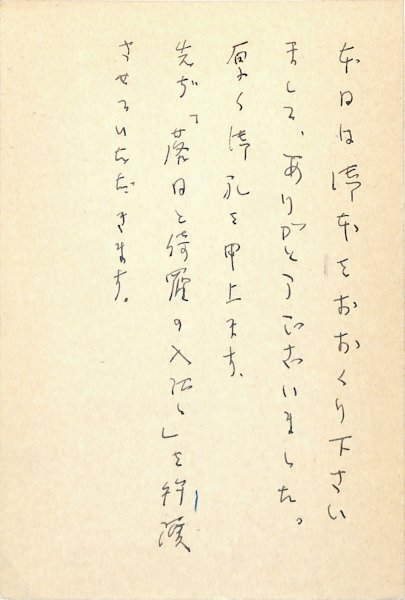 本日は御本をおおくり下さい
まして、ありがとうございました。
厚く御礼を申上ます。
先づ「落日と綺羅の人々」を拝読
させていただきます。